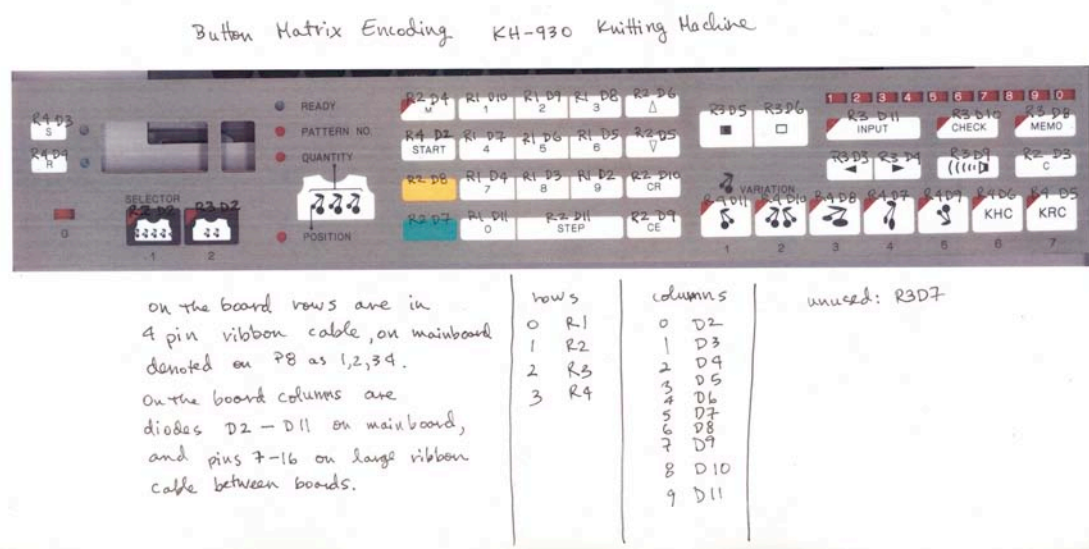 Button Matrix Encoding KH-930 Knitting Machine
R4 D3
S
R4 D4
R
READY
PATTERN NO.
QUANTITY
POSITION
SELECTOR
R2 D2
R3 D2
1
2
R2 D4 R1 D10 R1 D9 R1 D8 R2 D6
M 1 2 3 △
R4 D2 R1 D7 R1 D6 R1 D5 R2 D5
START 4 5 6 ▽
R2 D8 R1 D4 R1 D3 R1 D2 R2 D10
7 8 9 CR
R2 D7 R1 D11 R2 D11 R2 D9
0 STEP CE
R3D5 R3D6
1 2 3 4 5 6 7 8 9 0
R3 D11 R3 D10 R3 D8
INPUT CHECK MEMO
R3D3 R3 D4 R3D9 R2 D3
◄ ► C
VARIATION
R4D11 R4D10 R4D8 R4D7 R4D9 R4D6 R4 D5
KHC KRC
1 2 3 4 5 6 7
on the board rows are in
4 pin ribbon cable, on mainboard
denoted on P8 as 1,2,3 4.
On the board columns are
diodes D2 – D11 on mainboard,
and pins 7-16 on large ribbon
cable between boards.
rows
0 R1
1 R2
2 R3
3 R4
columns
0 D2
1 D3
2 D4
3 D5
4 D6
5 D7
6 D8
7 D9
8 D10
9 D11
unused: R3D7